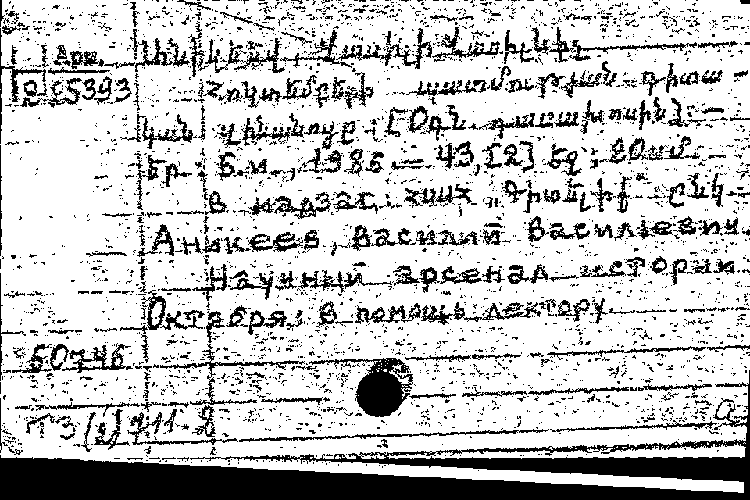 Արտ. Անիկեև, Վասիլի Վասիլևիչ
2 с5393 Հոկտեմբերի պատմության գիտա-
կան զինանոցը: [Օգն. դասախոսին]: —
Եր.: Б.м., 1986. — 43, [2] էջ; 20սմ.
В надзаг.: ՀՍՍՀ „Գիտելիք" ընկ.
Аникеев, Василий Васильевич.
Научный арсенал истории
Октября: в помощь лектору.
50746
ТЗ (2) 711. 2